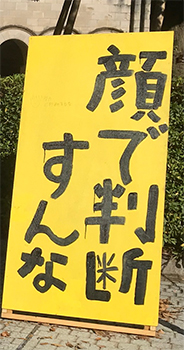 顔で判断
すんな